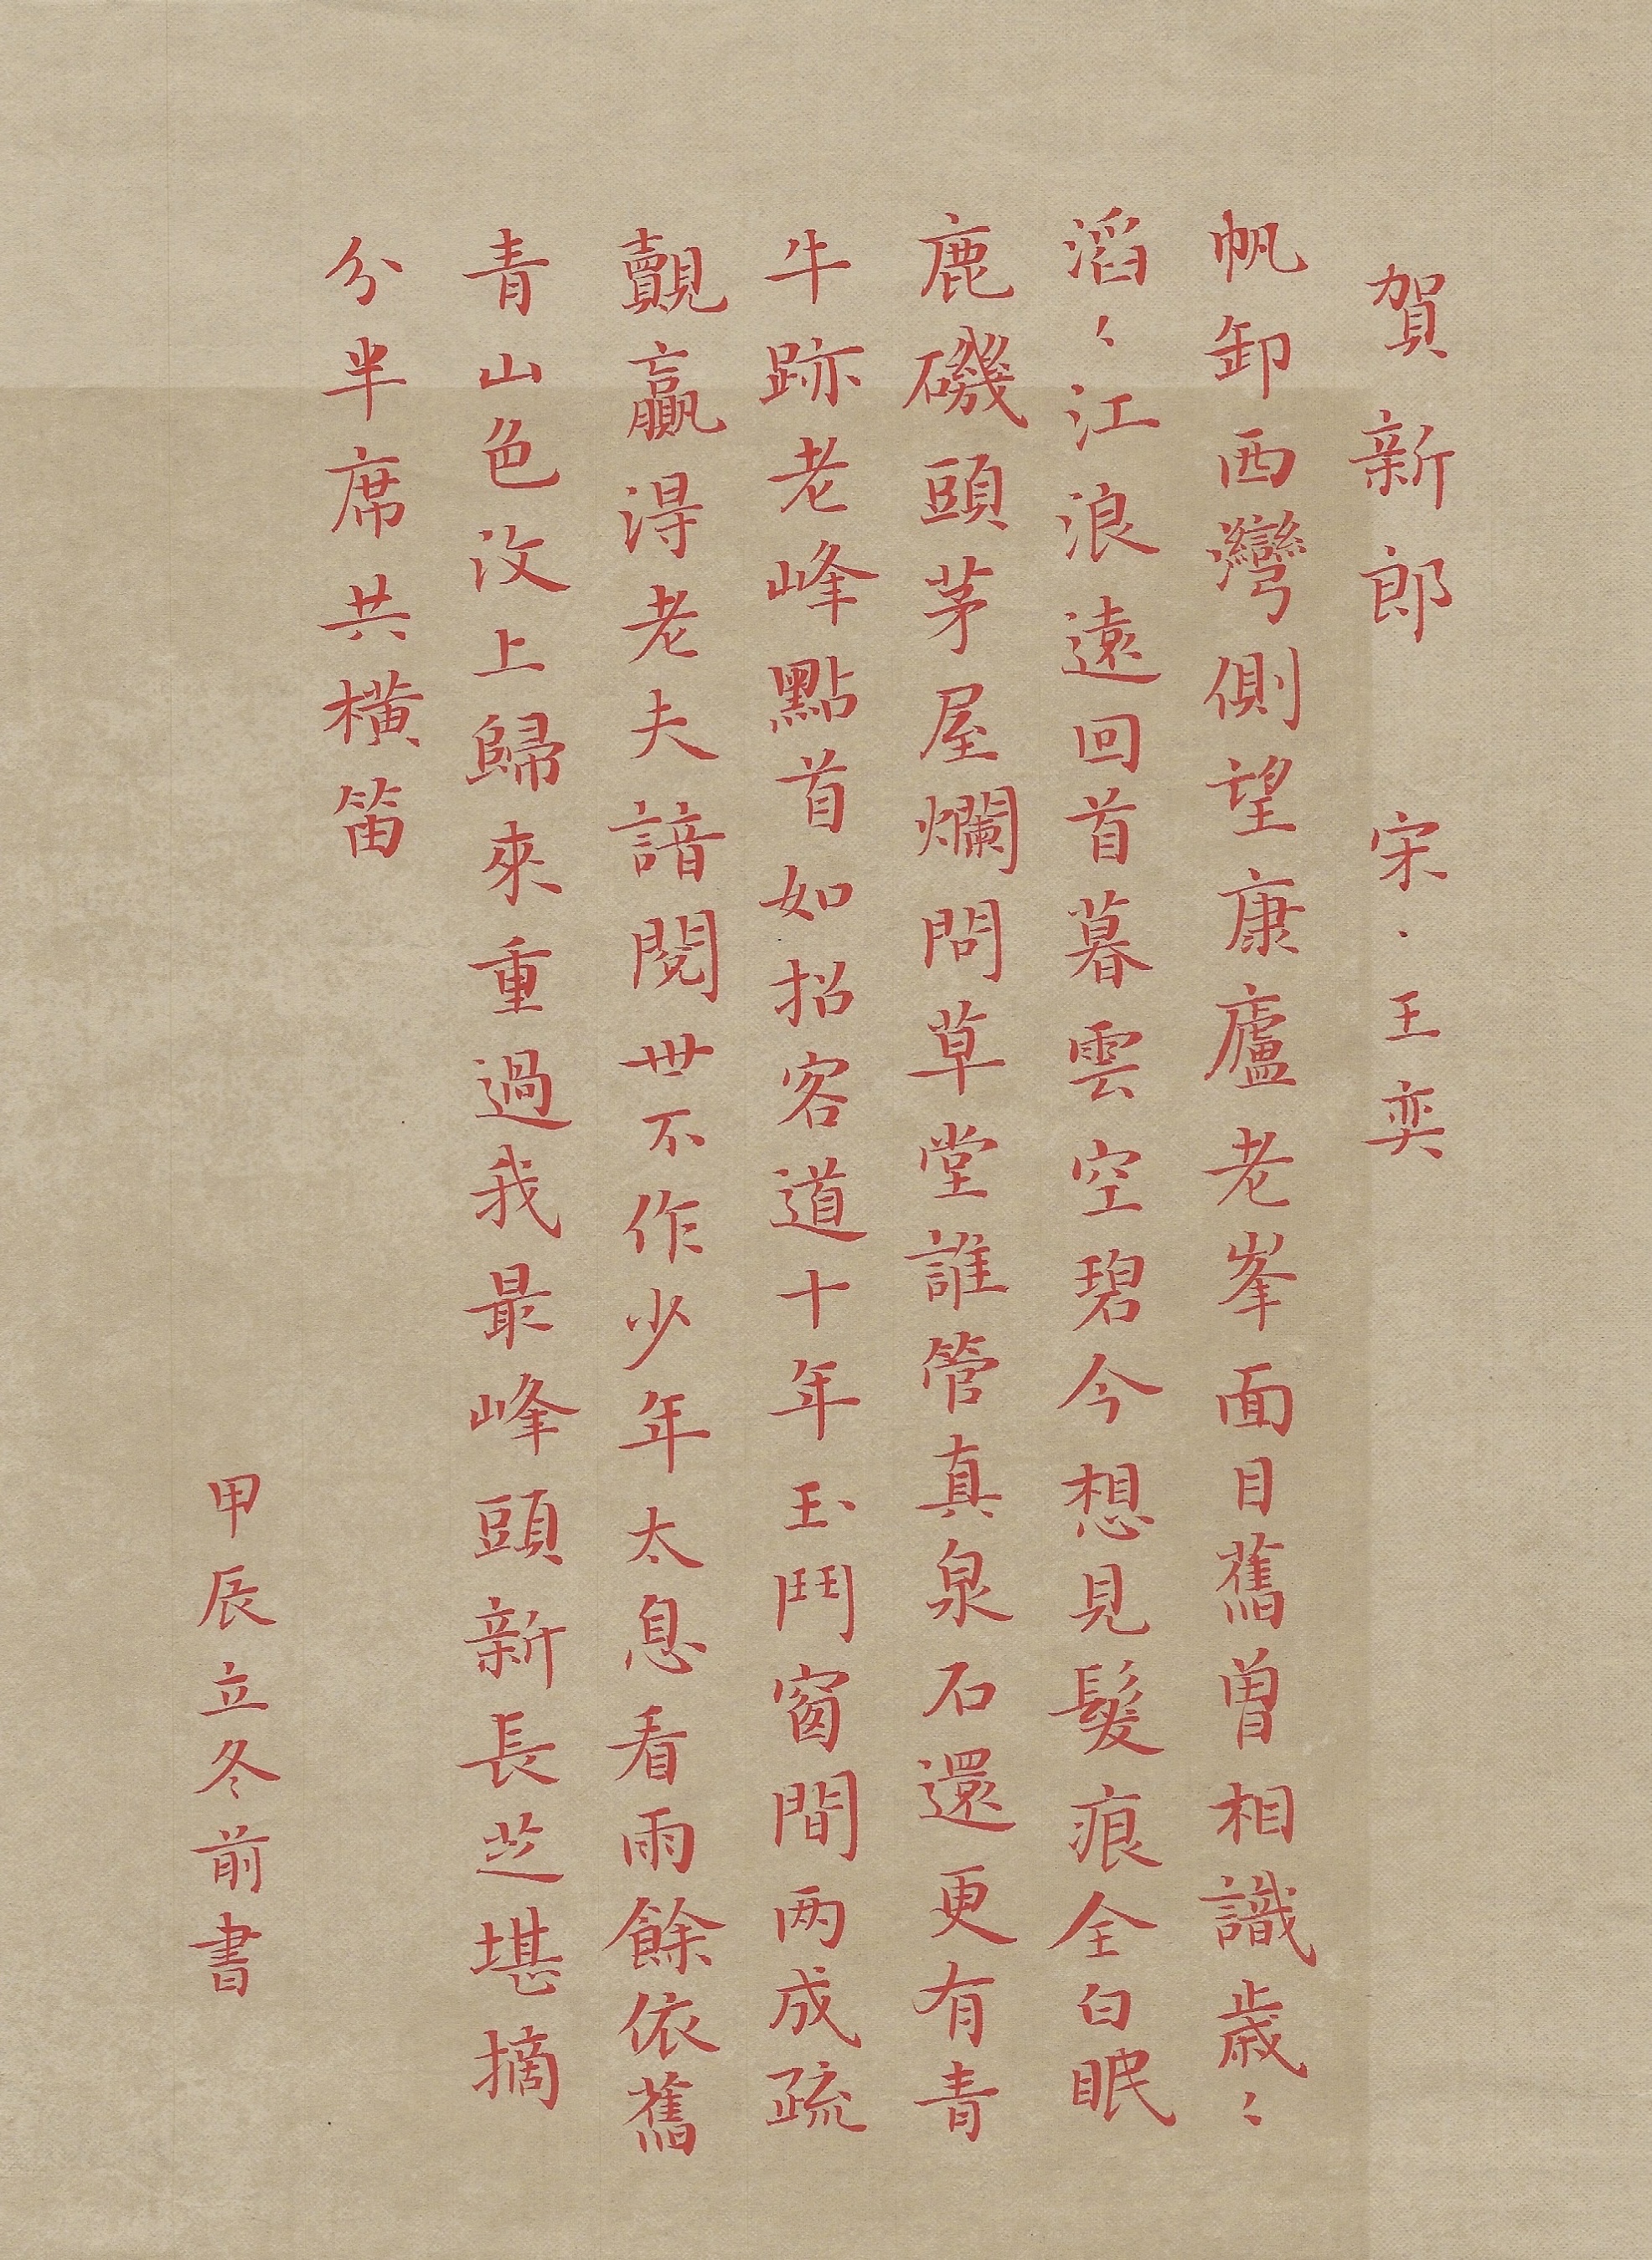 賀新郎　宋·王奕
帆卸西灣側望康廬老峯面目舊曾相識歲〻
滔〻江浪遠回首暮雲空碧今想見髮痕全白眠
鹿磯頭茅屋爛問草堂誰管真泉石還更有青
牛跡老峰點首如招客道十年玉鬥窗間两成疏
覿贏淂老夫諳閱世不作少年太息看雨餘依舊
青山色汶上歸來重過我最峰頭新長芝堪摘
分半席共橫笛
甲辰立冬前書